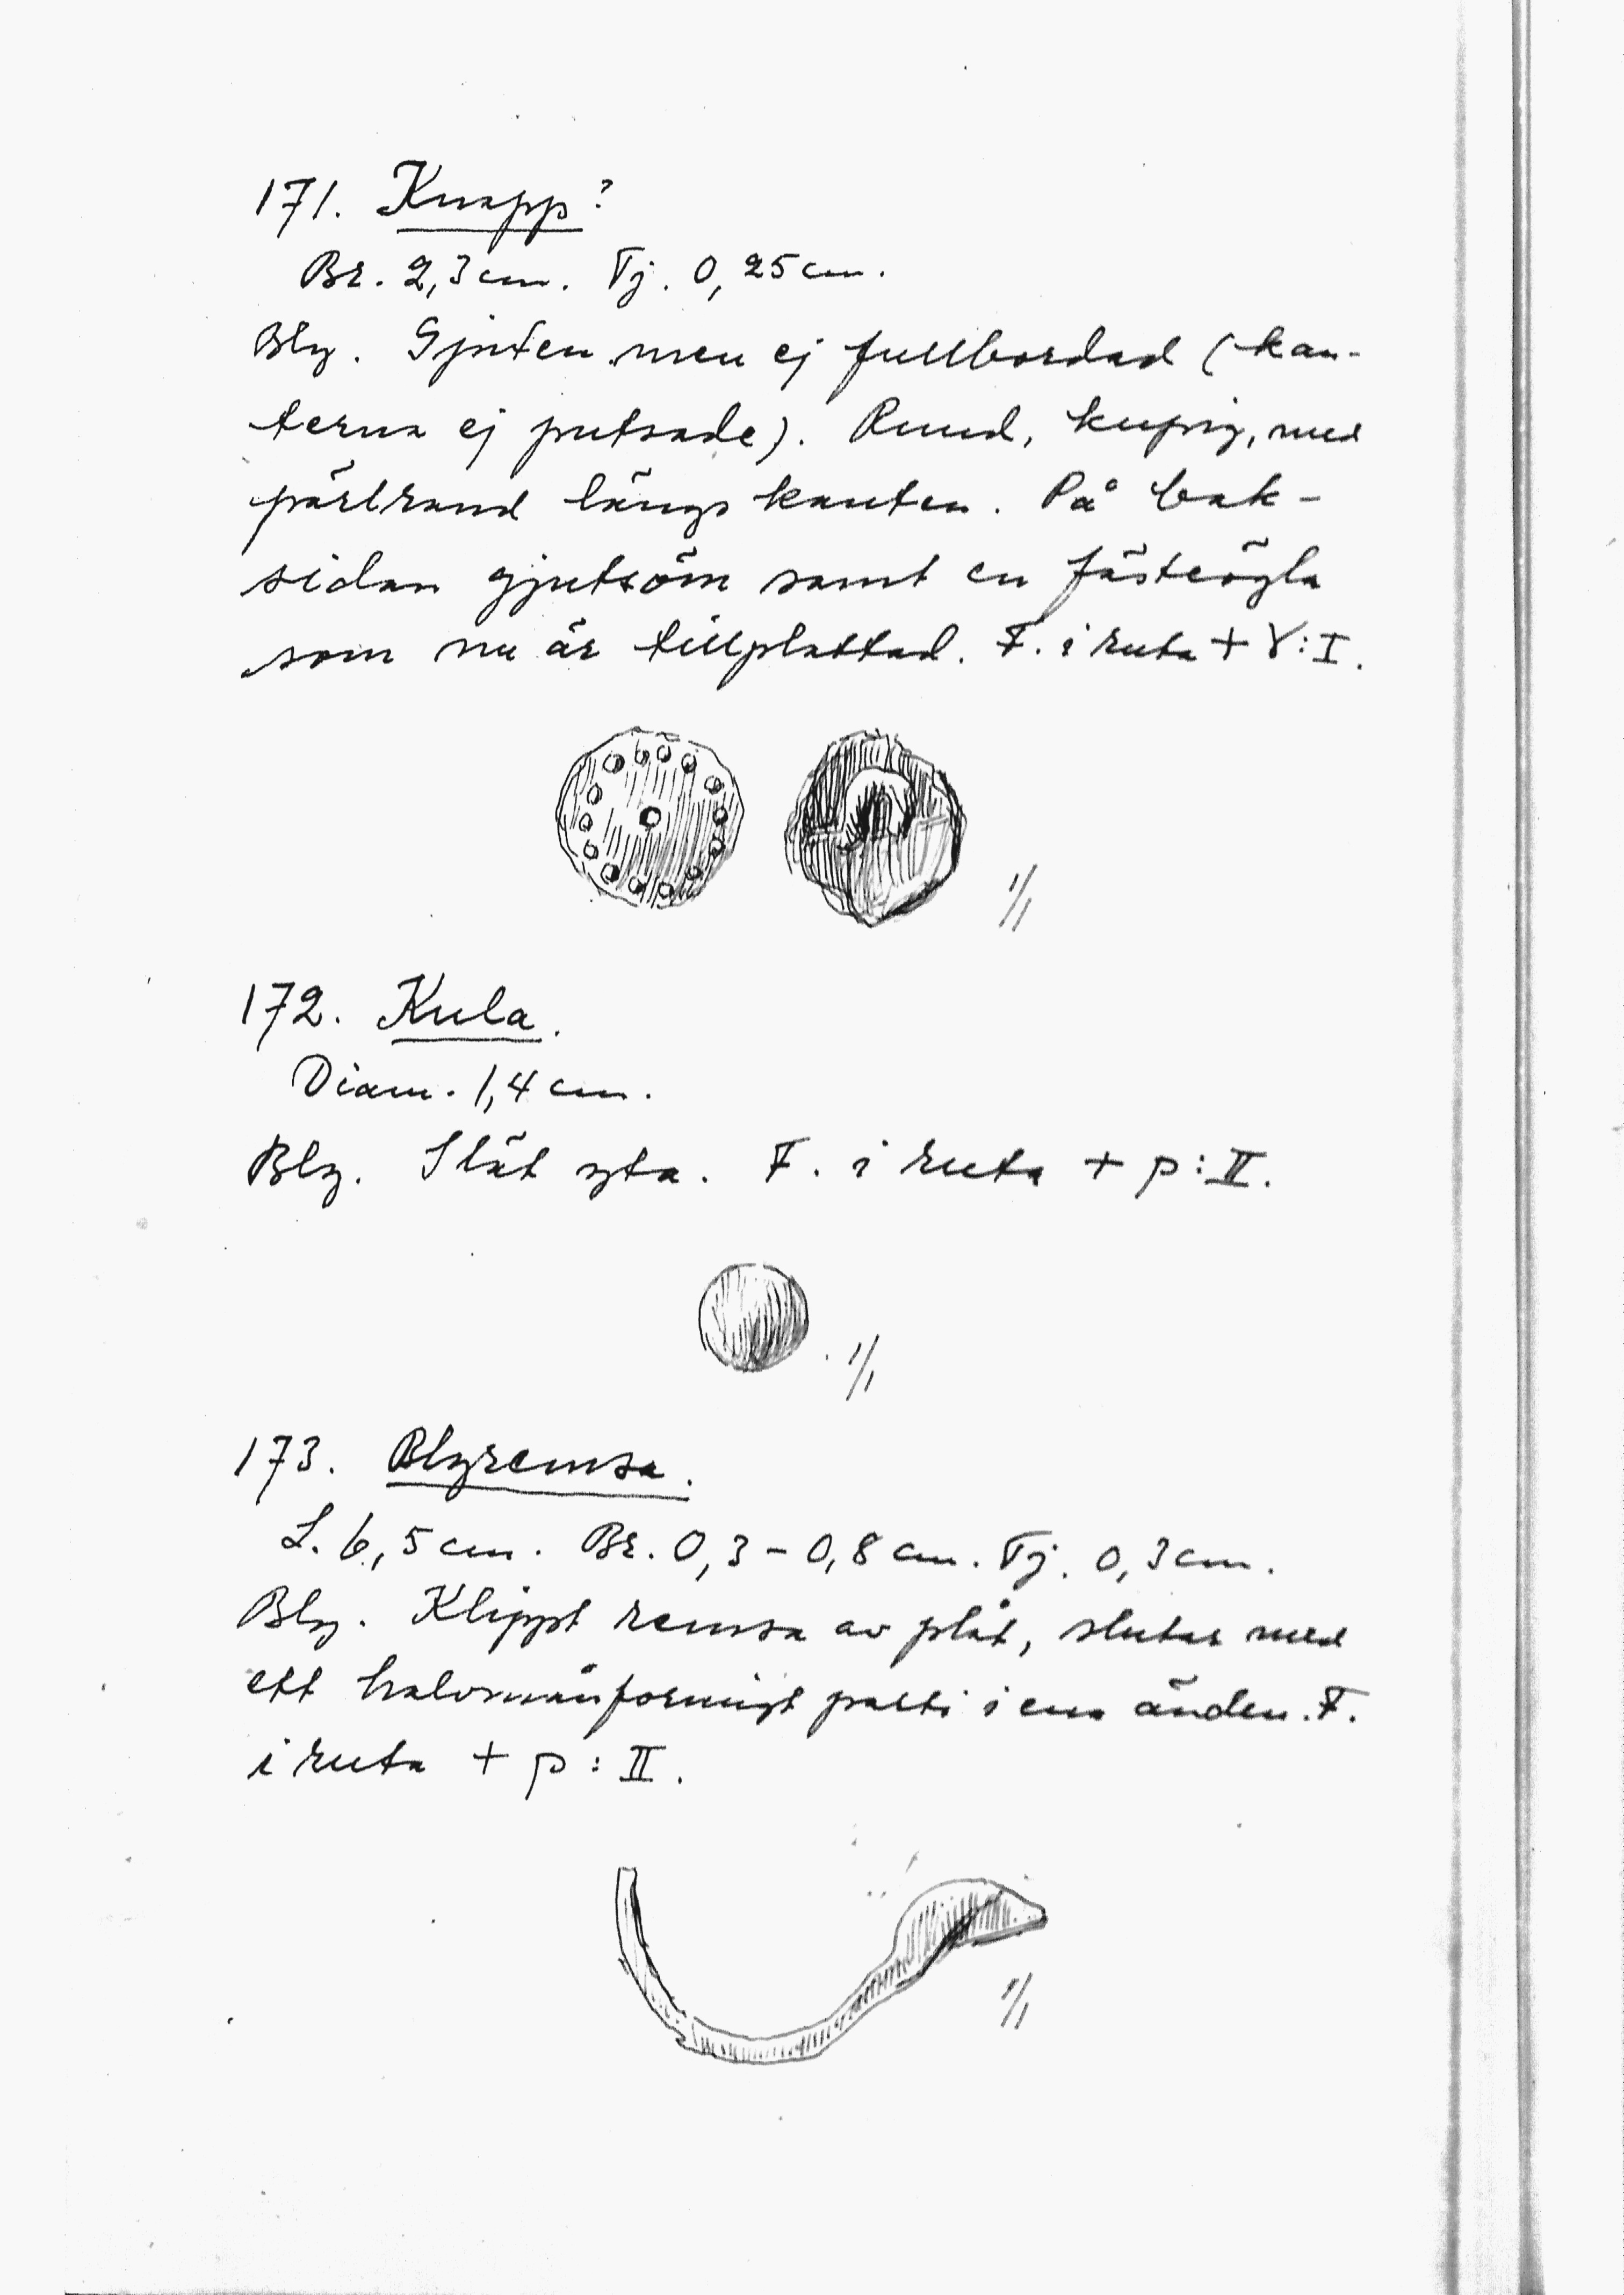 171. Knapp?
Br. 2,3 cm. Tj. 0,25 cm.
Bly. Gjuten men ej fullbordad (kan-
terna ej putsade). Rund, kupig, med
pärlrand längs kanten. På bak-
sidan gjutsöm samt en fästeögla
som nu är tillplattad. F. i ruta + Y:I.
1/1
172. Kula.
Diam. 1,4 cm.
Bly. Slät yta. F. i ruta + p:II.
1/1
173. Blyremsa.
L. 6,5 cm. Br. 0,3-0,8 cm. Tj. 0,3 cm.
Bly. Klippt remsa av plåt, slutar med
ett halvmånformigt parti i ena änden. F.
i ruta + p:II.
1/1